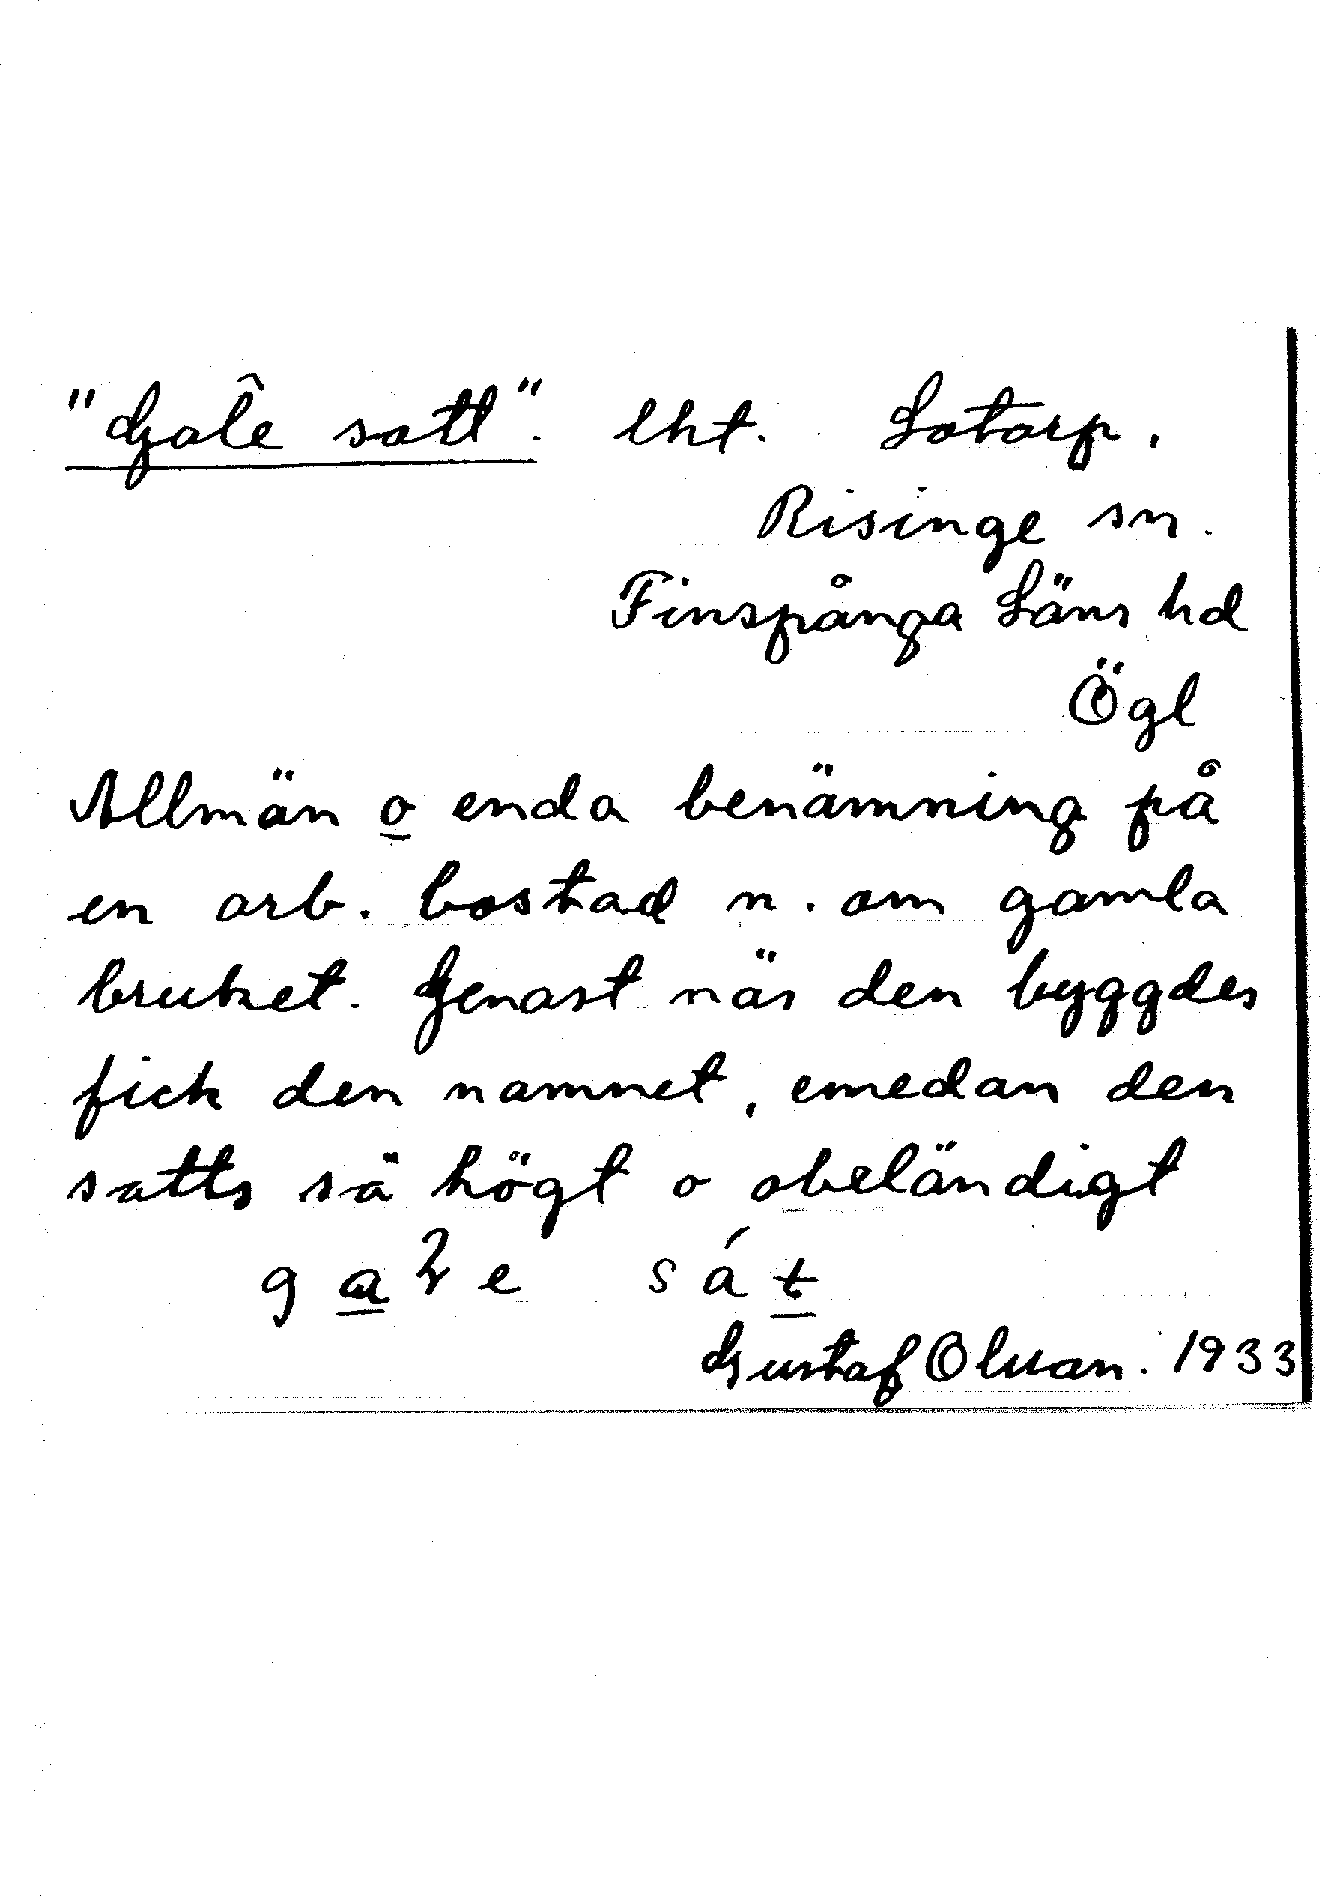 "Gal̂e satt". lht. Lotorp.
Risinge sn.
Finspånga Läns hd
Ögl
Allmän o enda benämning på
en arb. bostad n. om gamla
bruket. Genast när den byggdes
fick den namnet, emedan den
satts så högt o obeländigt
sát
Gustaf Olsson. 1933